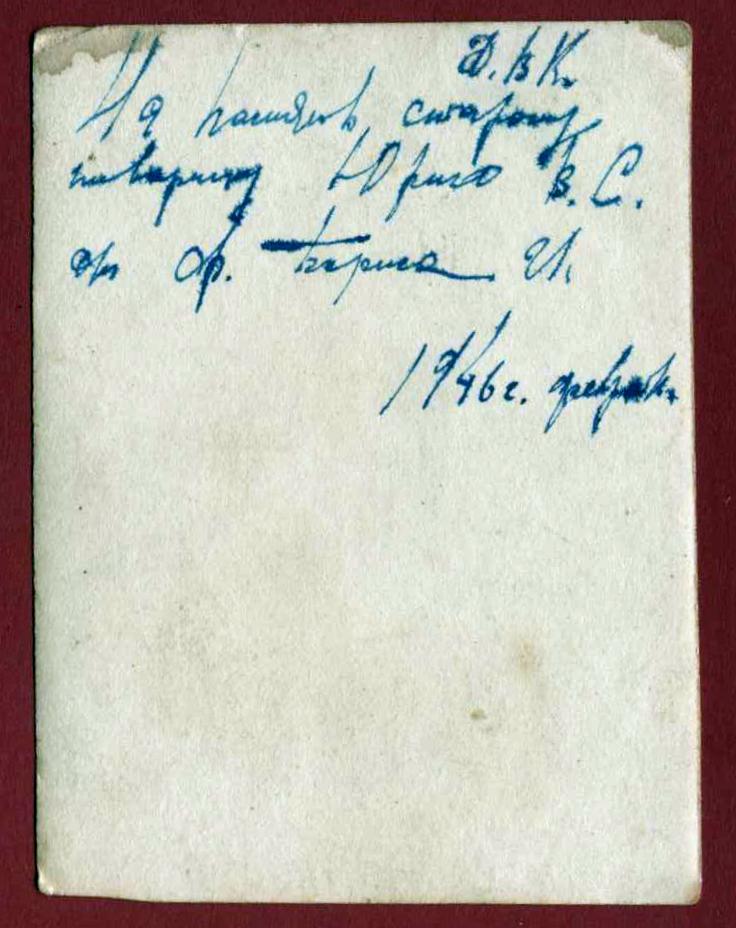 Д.В.К.
На память старому
товарищу Юрию В. С.
от ф. Бориса И.
1946 г. февраль.